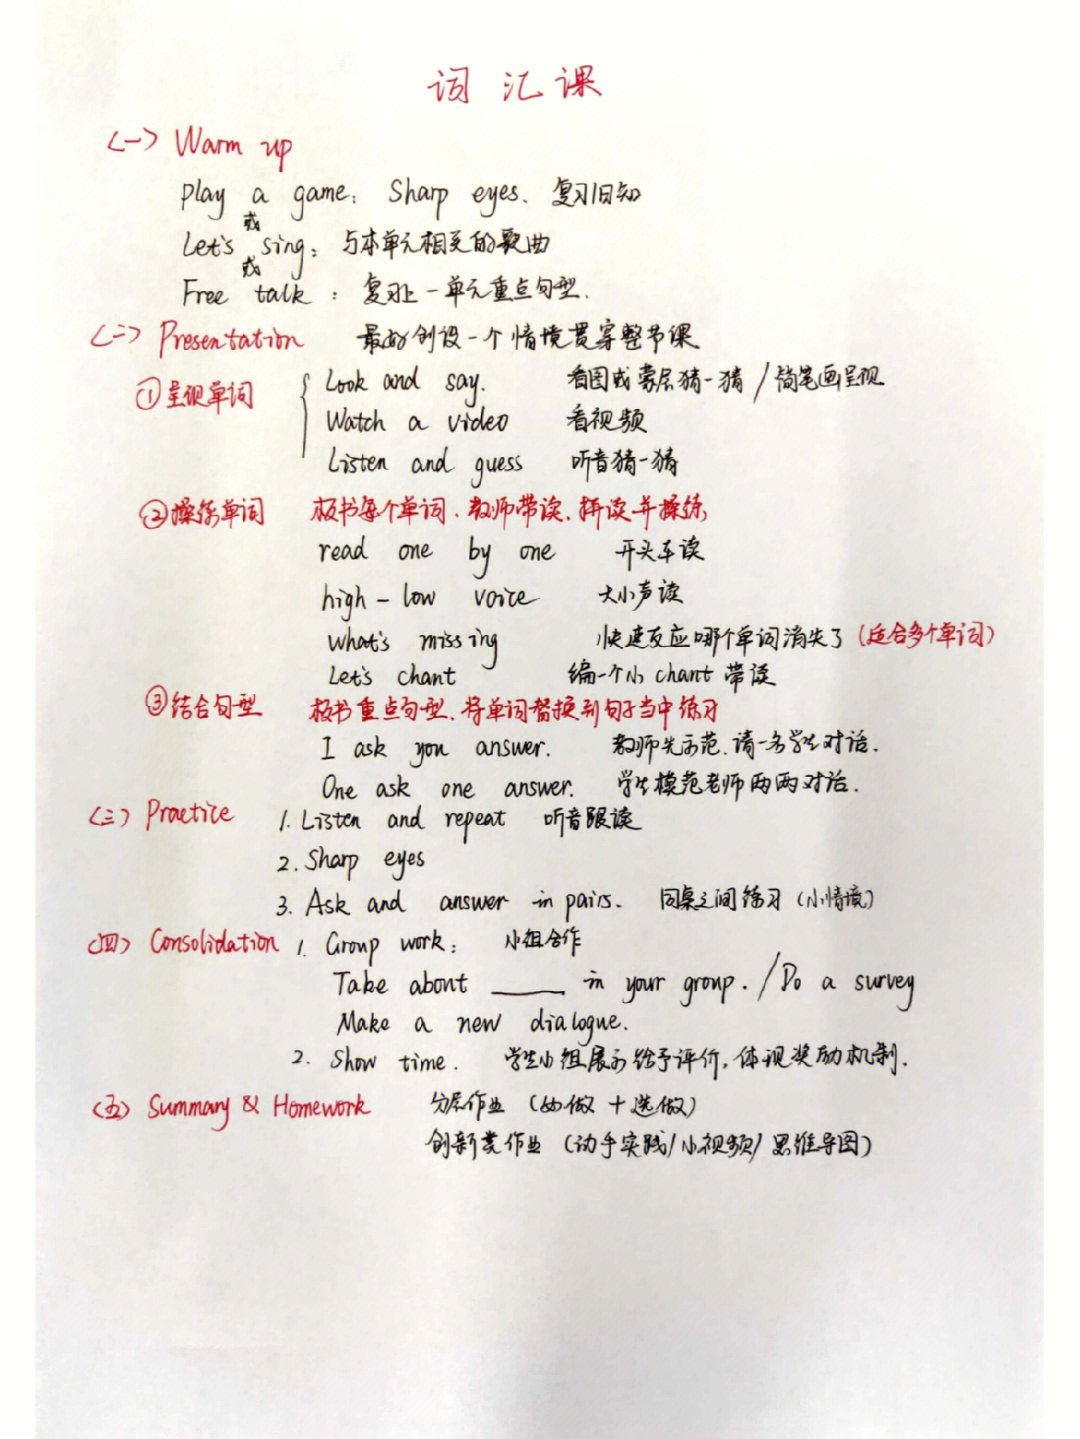 词汇课
(一) Warm up
Play a game: Sharp eyes. 复习旧知
或
Let's sing: 与本单元相关的歌曲
或
Free talk: 复习上一单元重点句型.
(二) Presentation 最好创设一个情境贯穿整节课
①呈现单词 { Look and say. 看图或蒙层猜一猜 / 简笔画呈现
Watch a video 看视频
Listen and guess 听音猜一猜
②操练单词 板书每个单词、教师带读、拼读并操练
read one by one 开火车读
high-low voice 大小声读
What's missing 快速反应哪个单词消失了 (适合多个单词)
Let's chant 编一个小chant带读
③结合句型 板书重点句型、将单词替换到句子当中练习
I ask you answer. 教师先示范、请一名学生对话.
One ask one answer. 学生模范老师两两对话.
(三) Practice 1. Listen and repeat 听音跟读
2. Sharp eyes
3. Ask and answer in pairs. 同桌之间练习 (小情境)
(四) Consolidation 1. Group work: 小组合作
Take about ____ in your group. / Do a survey
Make a new dialogue.
2. Show time. 学生小组展示给予评价, 体现奖励机制.
(五) Summary & Homework 分层作业 (必做 + 选做)
创新类作业 (动手实践/小视频/思维导图)